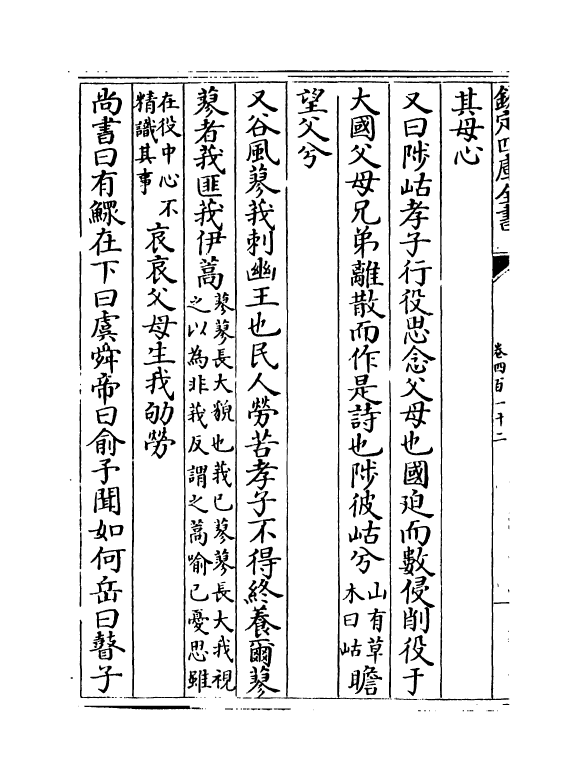 欽定四庫全書
卷四百一十二
其母心
又曰陟岵孝子行役思念父母也國迫而數侵削役于
大國父母兄弟離散而作是詩也陟彼岵兮山有草木曰岵瞻
望父兮
又谷風蓼莪刺幽王也民人勞苦孝子不得終養爾蓼
蓼者莪匪莪伊蒿蓼蓼長大貌也莪已蓼蓼長大我視之以為非莪反謂之蒿喻已憂思雖
在役中心不精識其事哀哀父母生我劬勞
尚書曰有鰥在下曰虞舜帝曰俞予聞如何岳曰瞽子